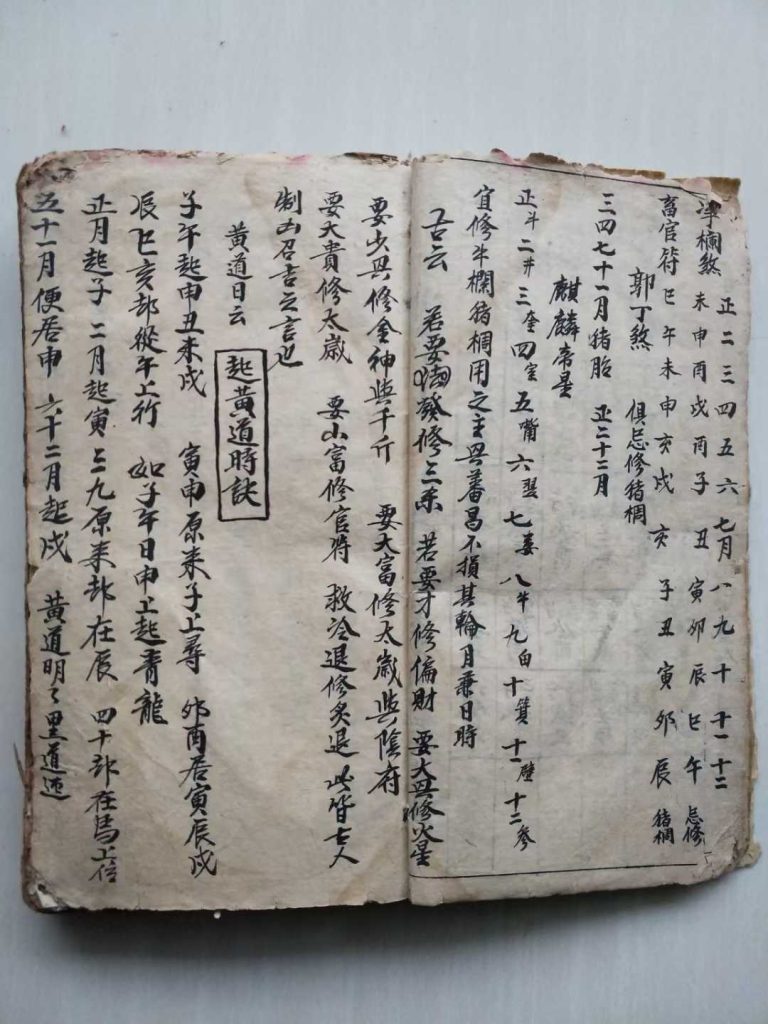 正 二 三 四 五 六 七月 八 九 十 十一 十二
欄煞 未 申 酉 戌 丙 子 丑 寅 卯 辰 巳 午 忌修
畜官符 巳 午 未 申 亥 戌 亥 子 丑 寅 卯 辰 猪椆
郭丁煞 俱忌修猪椆
三四七十一月猪胎 正二十二月
麒麟帝星
正斗 二井 三奎 四室 五嘴 六翌 七婁 八牛 九 十箕 十一壁 十二参
宜修牛欄猪椆用之主興蕃昌不損其輪月兼日時
古云 若要發修三 若要才修偏財 要大興修火星
要少興修金神與千斤 要大富修太歲與陰府
要大貴修太歲 要山富修官符 救冷退修炙退 此皆古人
制凶召吉之言也
黄道日云
起黄道時訣
子午起申丑未戌 寅申原来子上尋 卯酉居寅辰戌
辰巳亥都從午上行 如子午日申上起青龍
正月起子 二月起寅 三九原来都在辰 四十都在馬上
五十一月便居申 六十二月起戌 黄道明々里道